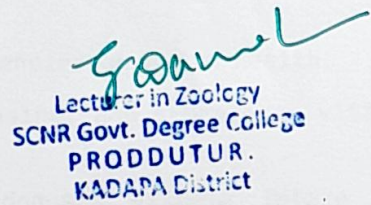 Lecturer in Zoology
SCNR Govt. Degree College
PRODDUTUR.
KADAPA District